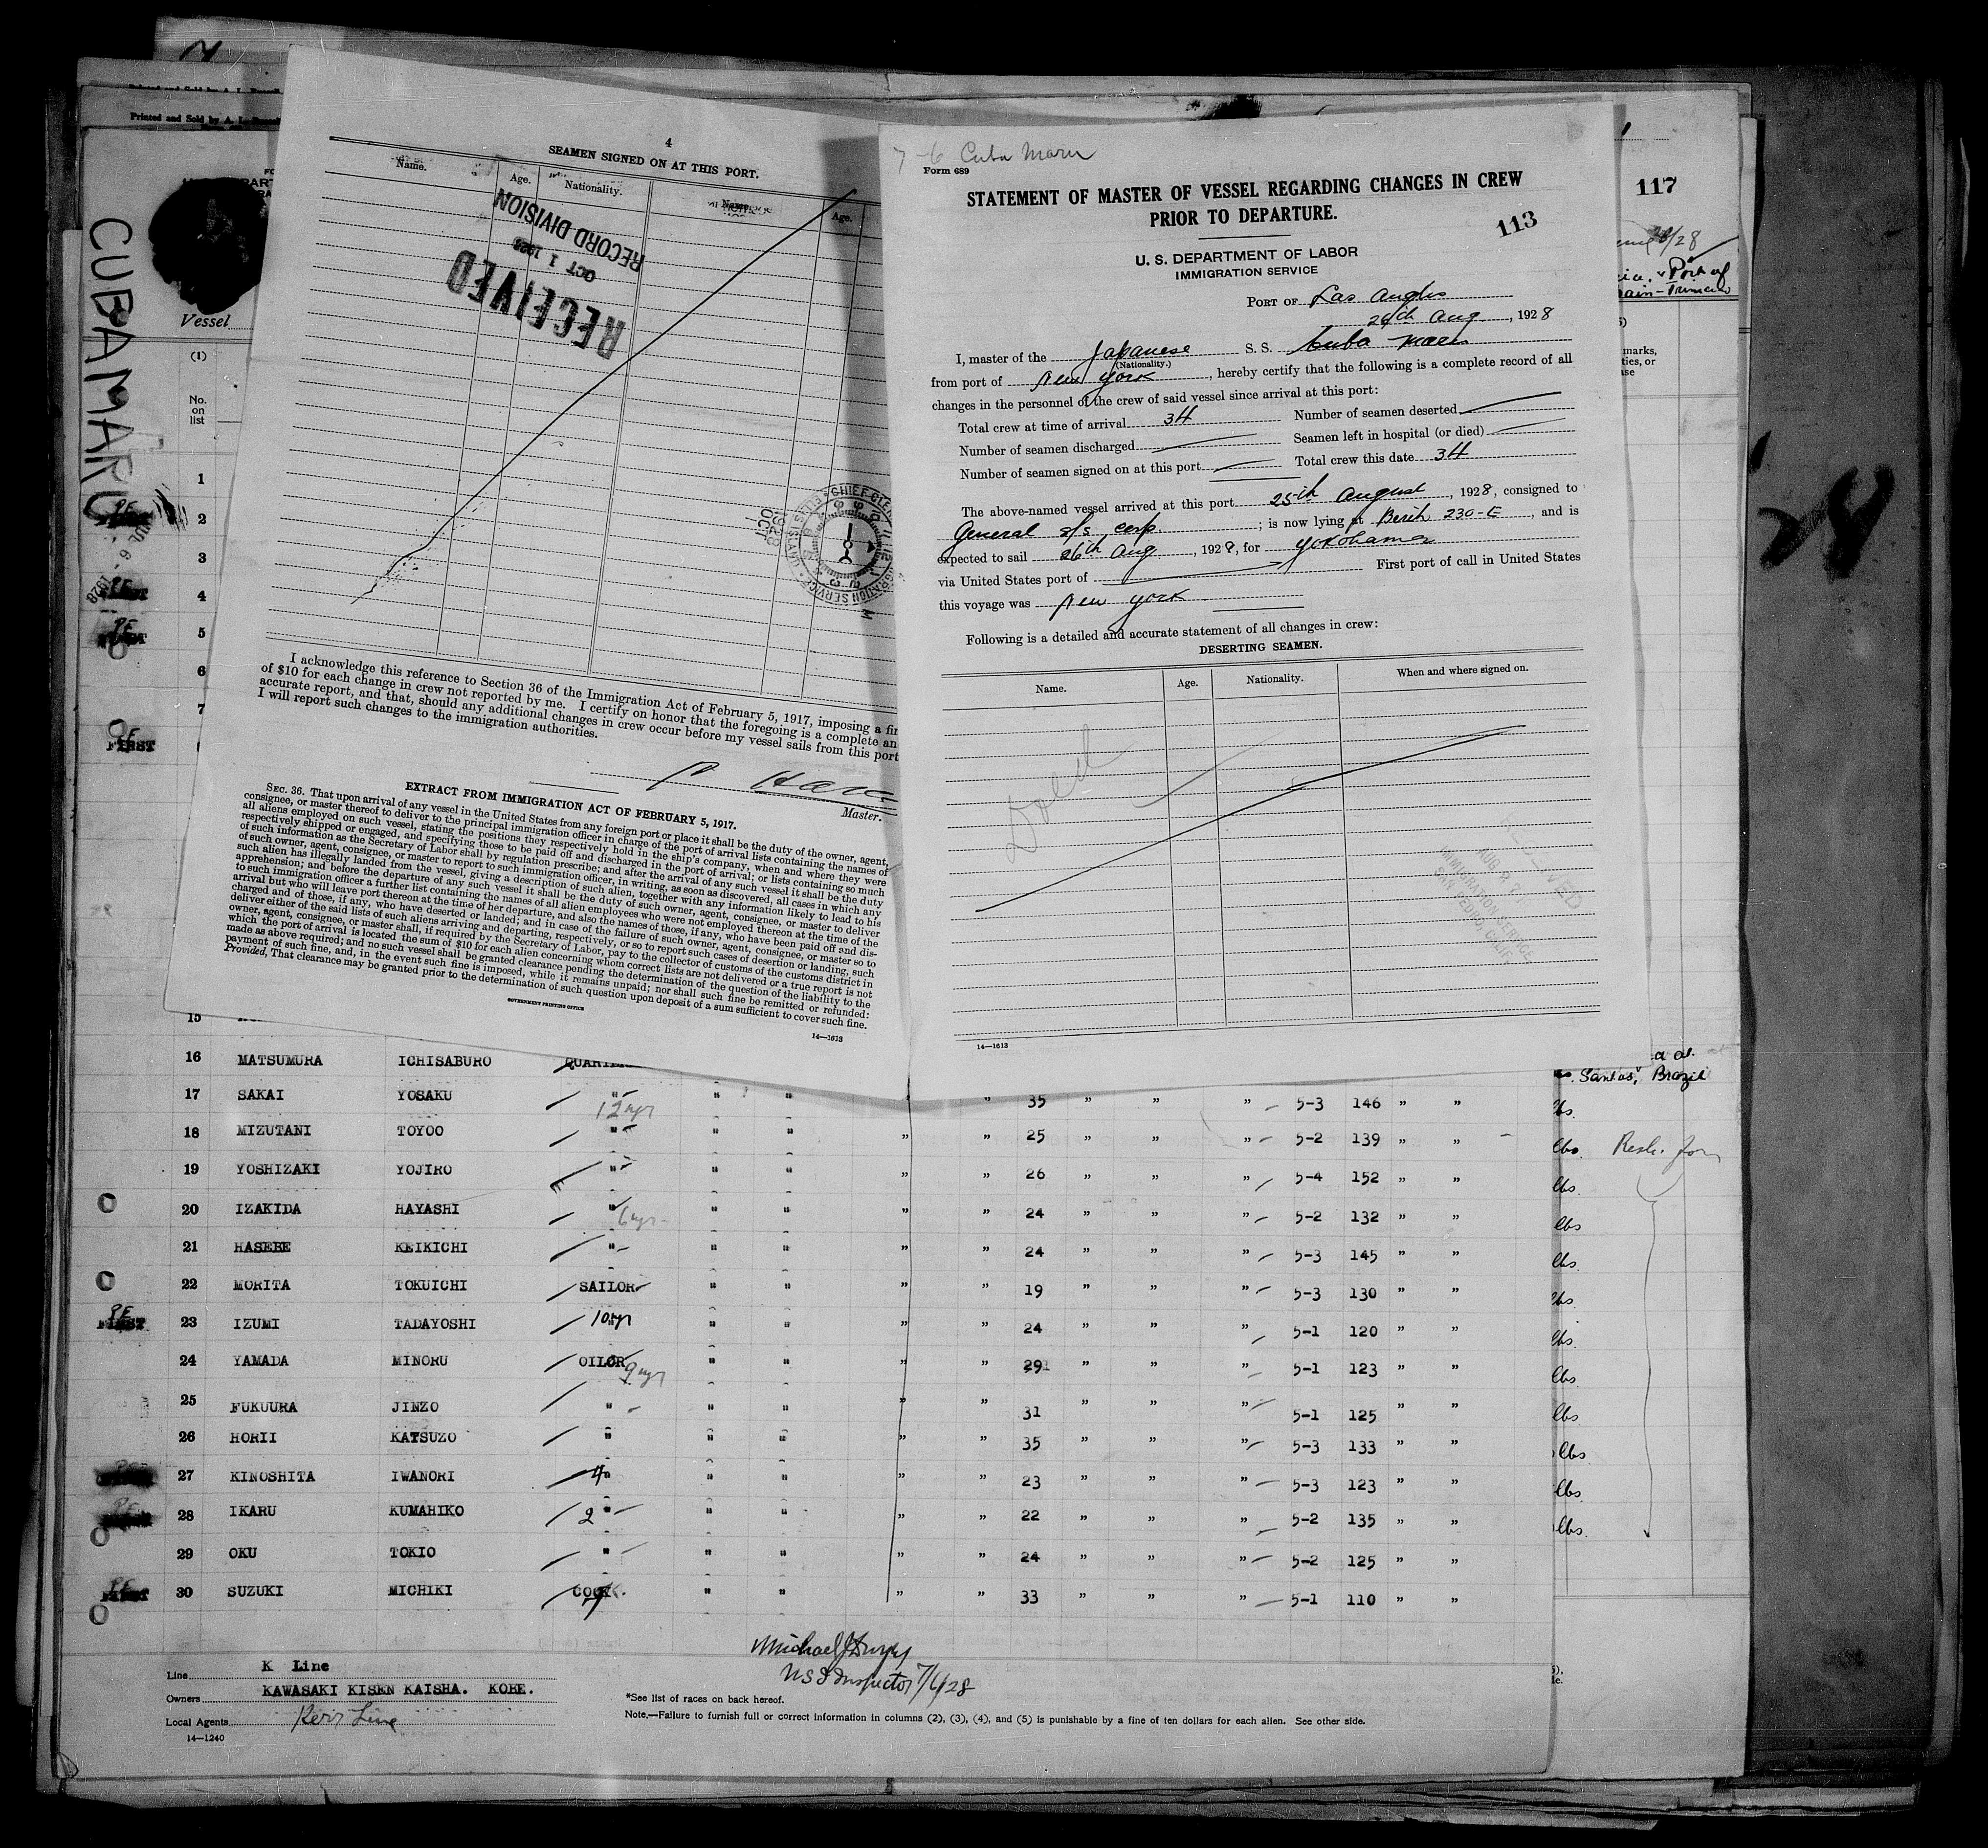 Printed and Sold by A. L.
CUBA MARU
Vessel
(1)
No.
on
list
1
2
3
4
5
6
7
FIRST
JUL 6 - 1928
4
SEAMEN SIGNED ON AT THIS PORT.
Name. Age. Nationality. Name. Age.
RECEIVED
OCT 1 1928
RECORD DIVISION
I acknowledge this reference to Section 36 of the Immigration Act of February 5, 1917, imposing a
of $10 for each change in crew not reported by me. I certify on honor that the foregoing is a complete
accurate report, and that, should any additional changes in crew occur before my vessel sails from this port
I will report such changes to the immigration authorities.
Master.
EXTRACT FROM IMMIGRATION ACT OF FEBRUARY 5, 1917.
SEC. 36. That upon arrival of any vessel in the United States from any foreign port or place it shall be the duty of the owner, agent,
consignee, or master thereof to deliver to the principal immigration officer in charge of the port of arrival lists containing the names of
all aliens employed on such vessel, stating the positions they respectively hold in the ship's company, when and where they were
respectively shipped or engaged, and specifying those to be paid off and discharged in the port of arrival; or lists containing so much
of such information as the Secretary of Labor shall by regulation prescribe; and after the arrival of any such vessel it shall be the duty
of such owner, agent, consignee, or master to report to such immigration officer, in writing, as soon as discovered, all cases in which any
such alien has illegally landed from the vessel, giving a description of such alien, together with any information likely to lead to his
apprehension; and before the departure of any such vessel it shall be the duty of such owner, agent, consignee, or master to deliver
to such immigration officer a further list containing the names of all alien employees who were not employed thereon at the time of the
arrival but who will leave port thereon at the time of her departure, and also the names of those, if any, who have been paid off and dis-
charged and of those, if any, who have deserted or landed; and in case of the failure of such owner, agent, consignee, or master so to
deliver either of the said lists of such aliens arriving and departing, respectively, or so to report such cases of desertion or landing, such
owner, agent, consignee, or master shall, if required by the Secretary of Labor, pay to the collector of customs of the customs district in
which the port of arrival is located the sum of $10 for each alien concerning whom correct lists are not delivered or a true report is not
made as above required; and no such vessel shall be granted clearance pending the determination of the question of the liability to the
payment of such fine, and, in the event such fine is imposed, while it remains unpaid; nor shall such fine be remitted or refunded:
Provided, That clearance may be granted prior to the determination of such question upon deposit of a sum sufficient to cover such fine.
GOVERNMENT PRINTING OFFICE
14—1613
7-6 Cuba Maru
Form 689
STATEMENT OF MASTER OF VESSEL REGARDING CHANGES IN CREW
PRIOR TO DEPARTURE.
113
U. S. DEPARTMENT OF LABOR
IMMIGRATION SERVICE
PORT OF Los Angles
26th Aug, 1928
I, master of the Japanese S. S. Cuba Maru
(Nationality.)
from port of New York, hereby certify that the following is a complete record of all
changes in the personnel of the crew of said vessel since arrival at this port:
Total crew at time of arrival 34 Number of seamen deserted
Number of seamen discharged Seamen left in hospital (or died)
Number of seamen signed on at this port Total crew this date 34
The above-named vessel arrived at this port 25th August, 1928, consigned to
General s/s corp.; is now lying at Berth 230-E, and is
expected to sail 26th Aug, 1928, for Yokohama
via United States port of First port of call in United States
this voyage was New York
Following is a detailed and accurate statement of all changes in crew:
DESERTING SEAMEN.
Name. Age. Nationality. When and where signed on.
IMMIGRATION SERVICE
SAN PEDRO, CALIF.
14—1613
117
Port of
marks,
15
16 MATSUMURA ICHISABURO
Santos, Brazil
17 SAKAI YOSAKU " " " " " 35 " " " 5-3 146 " " lbs.
12 yr
18 MIZUTANI TOYOO " " " " " 25 " " " 5-2 139 " " lbs.
19 YOSHIZAKI YOJIRO " " " " " 26 " " " 5-4 152 " " lbs.
20 IZAKIDA HAYASHI " 6yr " " " " 24 " " " 5-2 132 " " lbs
21 HASEBE KEIKICHI " " " " " 24 " " " 5-3 145 " " lbs.
22 MORITA TOKUICHI SAILOR " " " " 19 " " " 5-3 130 " " lbs.
FIRST 23 IZUMI TADAYOSHI 10yr " " " " 24 " " " 5-1 120 " " lbs.
24 YAMADA MINORU OILOR 9yr " " " " 29 " " " 5-1 123 " " lbs.
25 FUKUURA JINZO " " " " " 31 " " " 5-1 125 " " lbs.
26 HORII KATSUZO " " " " " 35 " " " 5-3 133 " " lbs
27 KINOSHITA IWANORI 4 " " " " " 23 " " " 5-3 123 " " lbs.
28 IKARU KUMAHIKO 2 " " " " " 22 " " " 5-2 135 " " lbs.
29 OKU TOKIO " " " " " 24 " " " 5-2 125 " "
30 SUZUKI MICHIKI COOK. " " " " 33 " " " 5-1 110 " "
U S I Inspector 7/6/28
Line K Line
Owners KAWASAKI KISEN KAISHA. KOBE.
Local Agents Kerr Line
14—1240
*See list of races on back hereof.
Note.—Failure to furnish full or correct information in columns (2), (3), (4), and (5) is punishable by a fine of ten dollars for each alien. See other side.